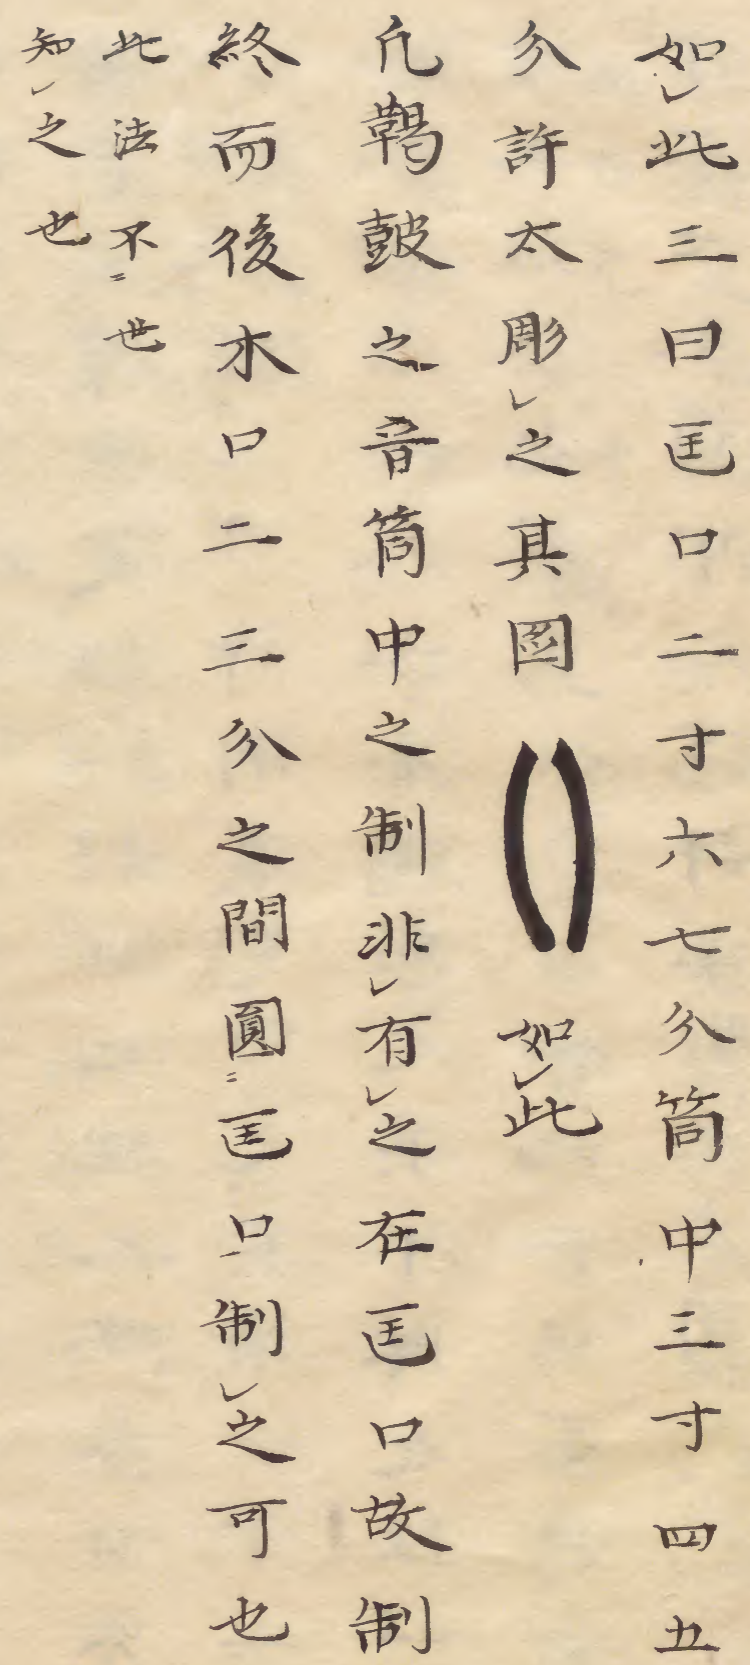 如㆑此三曰匡口二寸六七分筒中三寸四五
分許太彫㆑之其図如㆑此
凡鞨鼓之音筒中之制非㆑有㆑之在匡口故制
終而後木口二三分之間圓㆓匡口㆒制㆑之可也
此法不㆓世
知㆑之也